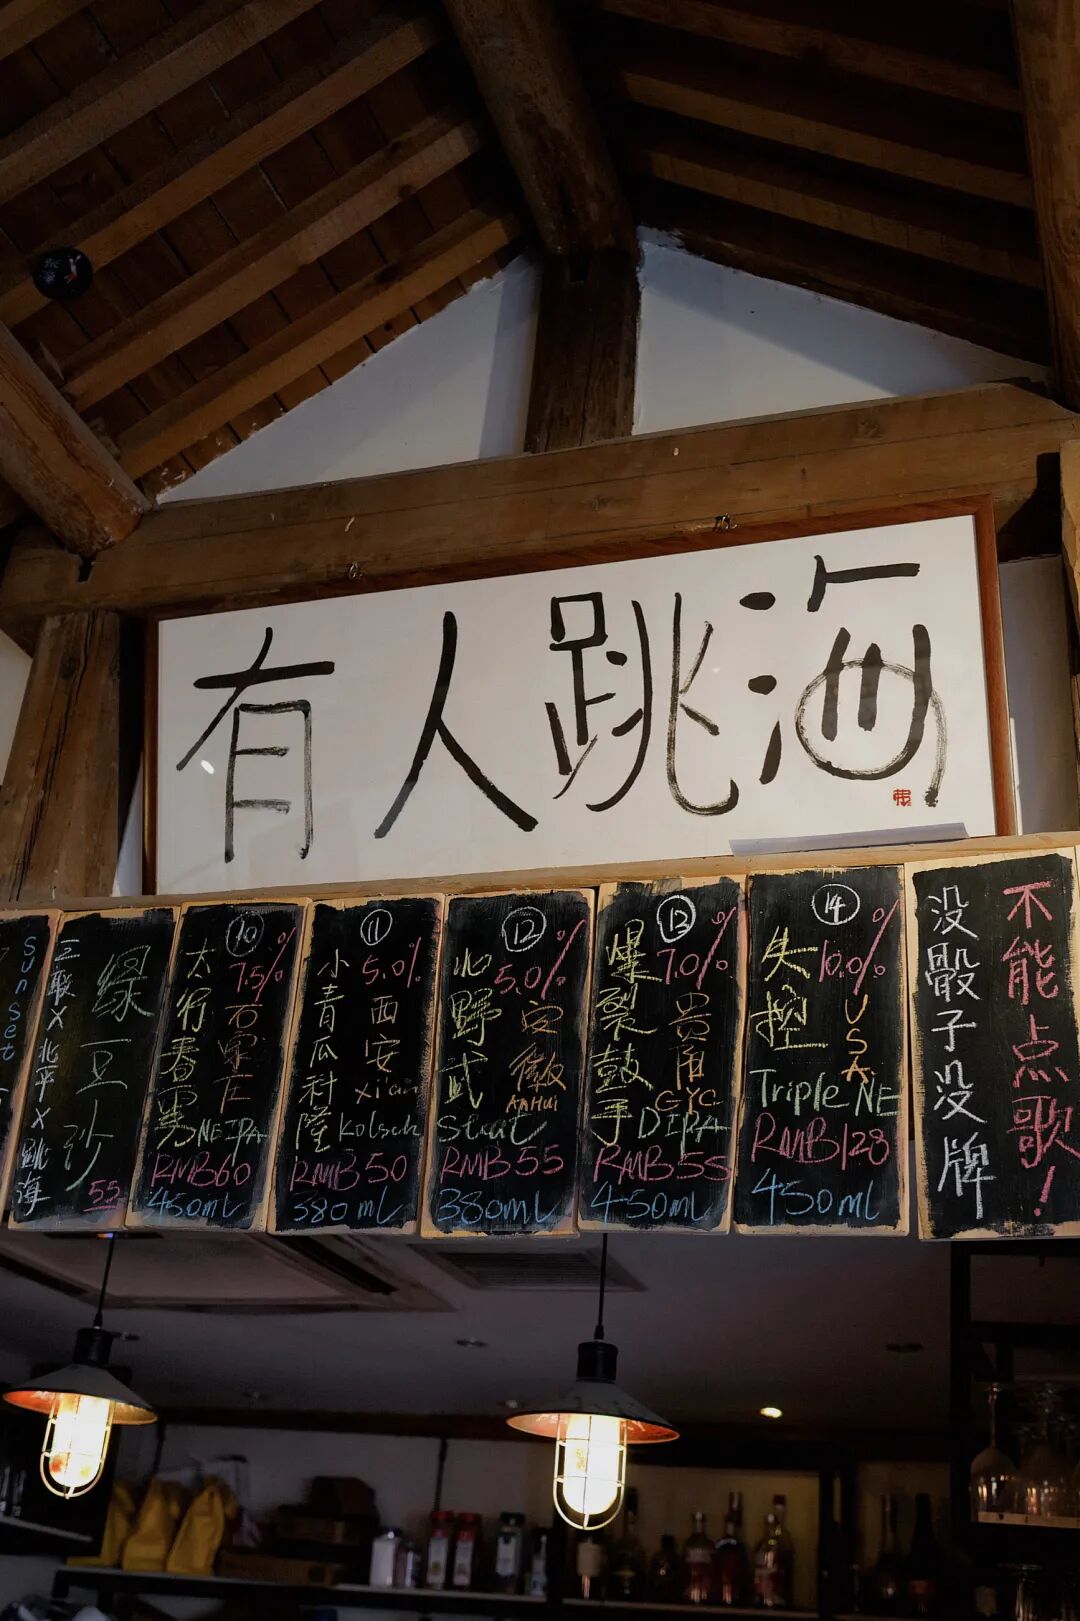 有人跳海
sunset
三联X北平X跳海
绿豆沙
55
10
7.5%
太行春男
石家庄
NEIPA
RMB60
450mL
11
5.0%
小青瓜科隆
西安
xi'an
Kolsch
RMB50
380mL
12
5.0%
北野武
安徽
ANHUI
Stout
RMB55
380mL
13
7.0%
爆裂鼓手
贵阳
GYC
DIPA
RMB55
450mL
14
10.0%
失控
USA
Triple NE
RMB128
450mL
不能点歌!
没骰子没牌